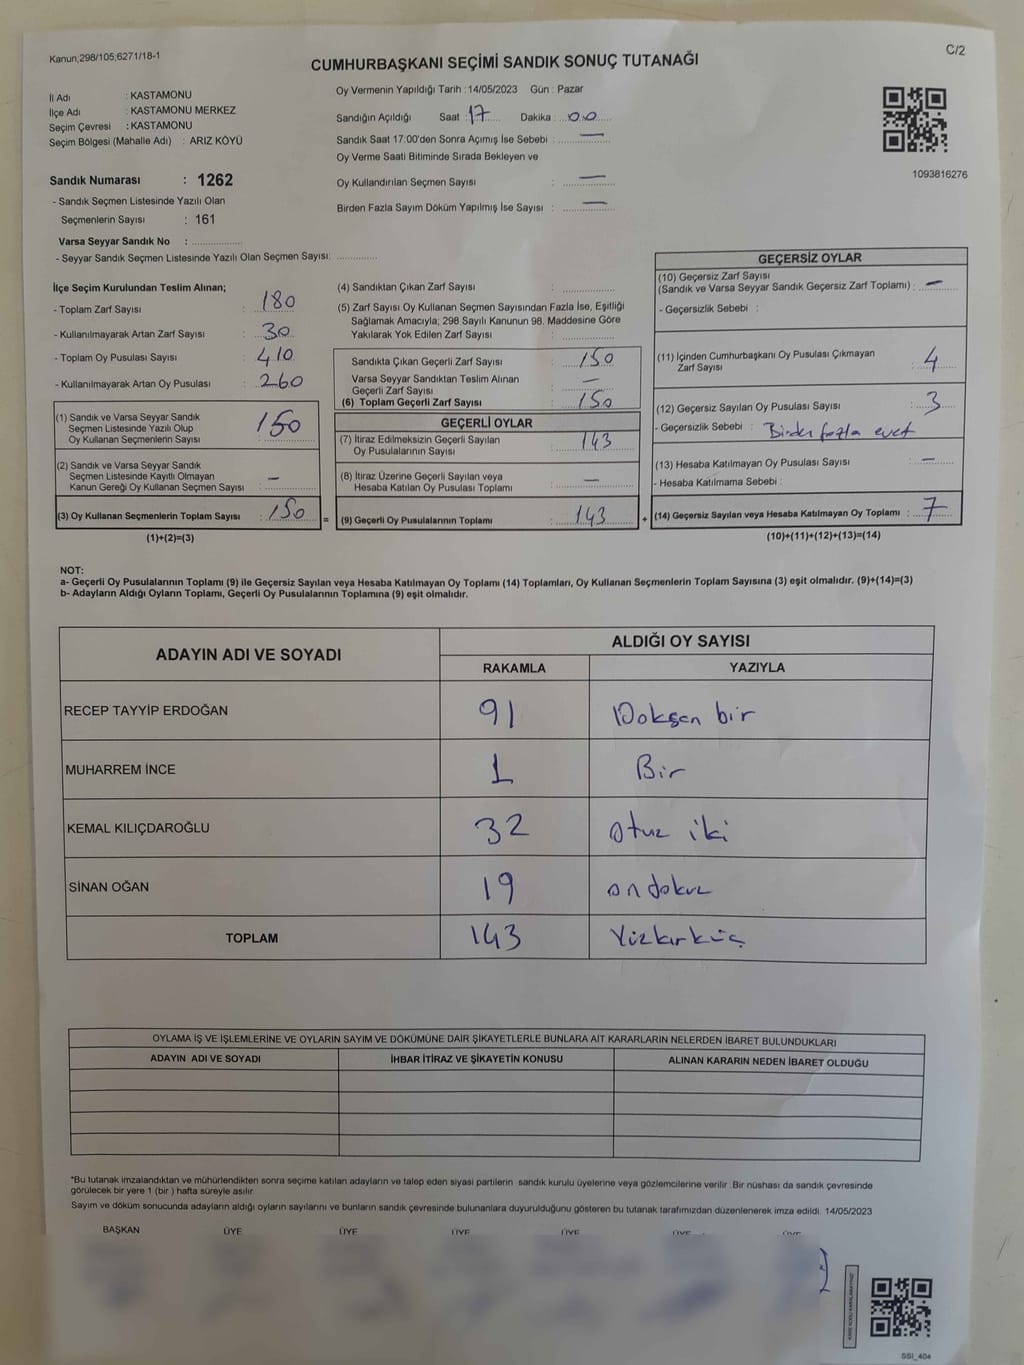 Kanun;298/105;6271/18-1
C/2
CUMHURBAŞKANI SEÇİMİ SANDIK SONUÇ TUTANAĞI
İl Adı : KASTAMONU
İlçe Adı : KASTAMONU MERKEZ
Seçim Çevresi : KASTAMONU
Seçim Bölgesi (Mahalle Adı) : ARIZ KÖYÜ
Sandık Numarası : 1262
- Sandık Seçmen Listesinde Yazılı Olan
Seçmenlerin Sayısı : 161
Varsa Seyyar Sandık No : ..................
- Seyyar Sandık Seçmen Listesinde Yazılı Olan Seçmen Sayısı: ..............
Oy Vermenin Yapıldığı Tarih : 14/05/2023 Gün : Pazar
Sandığın Açıldığı Saat : 17 Dakika : 00
Sandık Saat 17:00'den Sonra Açımış İse Sebebi : —
Oy Verme Saati Bitiminde Sırada Bekleyen ve
Oy Kullandırılan Seçmen Sayısı : —
Birden Fazla Sayım Döküm Yapılmış İse Sayısı : —
1093816276
İlçe Seçim Kurulundan Teslim Alınan;
- Toplam Zarf Sayısı : 180
- Kullanılmayarak Artan Zarf Sayısı : 30
- Toplam Oy Pusulası Sayısı : 410
- Kullanılmayarak Artan Oy Pusulası : 260
(1) Sandık ve Varsa Seyyar Sandık
Seçmen Listesinde Yazılı Olup
Oy Kullanan Seçmenlerin Sayısı : 150
(2) Sandık ve Varsa Seyyar Sandık
Seçmen Listesinde Kayıtlı Olmayan
Kanun Gereği Oy Kullanan Seçmen Sayısı : —
(3) Oy Kullanan Seçmenlerin Toplam Sayısı : 150 =
(1)+(2)=(3)
(4) Sandıktan Çıkan Zarf Sayısı : ..............
(5) Zarf Sayısı Oy Kullanan Seçmen Sayısından Fazla İse, Eşitliği
Sağlamak Amacıyla; 298 Sayılı Kanunun 98. Maddesine Göre
Yakılarak Yok Edilen Zarf Sayısı : ..............
Sandıkta Çıkan Geçerli Zarf Sayısı : 150
Varsa Seyyar Sandıktan Teslim Alınan
Geçerli Zarf Sayısı : —
(6) Toplam Geçerli Zarf Sayısı : 150
GEÇERLİ OYLAR
(7) İtiraz Edilmeksizin Geçerli Sayılan
Oy Pusulalarının Sayısı : 143
(8) İtiraz Üzerine Geçerli Sayılan veya
Hesaba Katılan Oy Pusulası Toplamı : —
(9) Geçerli Oy Pusulalarının Toplamı : 143 +
GEÇERSİZ OYLAR
(10) Geçersiz Zarf Sayısı
(Sandık ve Varsa Seyyar Sandık Geçersiz Zarf Toplamı) : —
- Geçersizlik Sebebi :
(11) İçinden Cumhurbaşkanı Oy Pusulası Çıkmayan
Zarf Sayısı : 4
(12) Geçersiz Sayılan Oy Pusulası Sayısı : 3
- Geçersizlik Sebebi : Birden fazla evet
(13) Hesaba Katılmayan Oy Pusulası Sayısı : —
- Hesaba Katılmama Sebebi :
(14) Geçersiz Sayılan veya Hesaba Katılmayan Oy Toplamı : 7
(10)+(11)+(12)+(13)=(14)
NOT:
a- Geçerli Oy Pusulalarının Toplamı (9) ile Geçersiz Sayılan veya Hesaba Katılmayan Oy Toplamı (14) Toplamları, Oy Kullanan Seçmenlerin Toplam Sayısına (3) eşit olmalıdır. (9)+(14)=(3)
b- Adayların Aldığı Oyların Toplamı, Geçerli Oy Pusulalarının Toplamına (9) eşit olmalıdır.
ADAYIN ADI VE SOYADI ALDIĞI OY SAYISI
RAKAMLA YAZIYLA
RECEP TAYYİP ERDOĞAN 91 Doksan bir
MUHARREM İNCE 1 Bir
KEMAL KILIÇDAROĞLU 32 otuz iki
SİNAN OĞAN 19 on dokuz
TOPLAM 143 Yüzkırküç
OYLAMA İŞ VE İŞLEMLERİNE VE OYLARIN SAYIM VE DÖKÜMÜNE DAİR ŞİKAYETLERLE BUNLARA AİT KARARLARIN NELERDEN İBARET BULUNDUKLARI
ADAYIN ADI VE SOYADI İHBAR İTİRAZ VE ŞİKAYETİN KONUSU ALINAN KARARIN NEDEN İBARET OLDUĞU
*Bu tutanak imzalandıktan ve mühürlendikten sonra seçime katılan adayların ve talep eden siyasi partilerin sandık kurulu üyelerine veya gözlemcilerine verilir .Bir nüshası da sandık çevresinde
görülecek bir yere 1 (bir ) hafta süreyle asılır
Sayım ve döküm sonucunda adayların aldığı oyların sayılarını ve bunların sandık çevresinde bulunanlara duyurulduğunu gösteren bu tutanak tarafımızdan düzenlenerek imza edildi. 14/05/2023
BAŞKAN ÜYE ÜYE ÜYE ÜYE ÜYE ÜYE
SSI_404